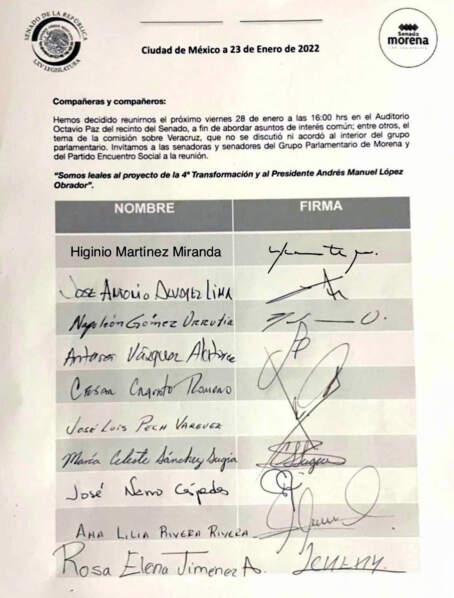 SENADO DE LA REPÚBLICA
LXV LEGISLATURA
Senado
morena
Ciudad de México a 23 de Enero de 2022
Compañeras y compañeros:
Hemos decidido reunirnos el próximo viernes 28 de enero a las 16:00 hrs en el Auditorio
Octavio Paz del recinto del Senado, a fin de abordar asuntos de interés común; entre otros, el
tema de la comisión sobre Veracruz, que no se discutió ni acordó al interior del grupo
parlamentario. Invitamos a las senadoras y senadores del Grupo Parlamentario de Morena y
del Partido Encuentro Social a la reunión.
"Somos leales al proyecto de la 4ª Transformación y al Presidente Andrés Manuel López
Obrador".
NOMBRE FIRMA
Higinio Martínez Miranda
José Antonio Álvarez Lima
Napoleón Gómez Urrutia
Vázquez
Cesar Cravioto Romero
José Luis Pech Varguez
María Celeste Sánchez Sugía
José Narro Céspedes
Ana Lilia Rivera Rivera
Rosa Elena Jimenez A.